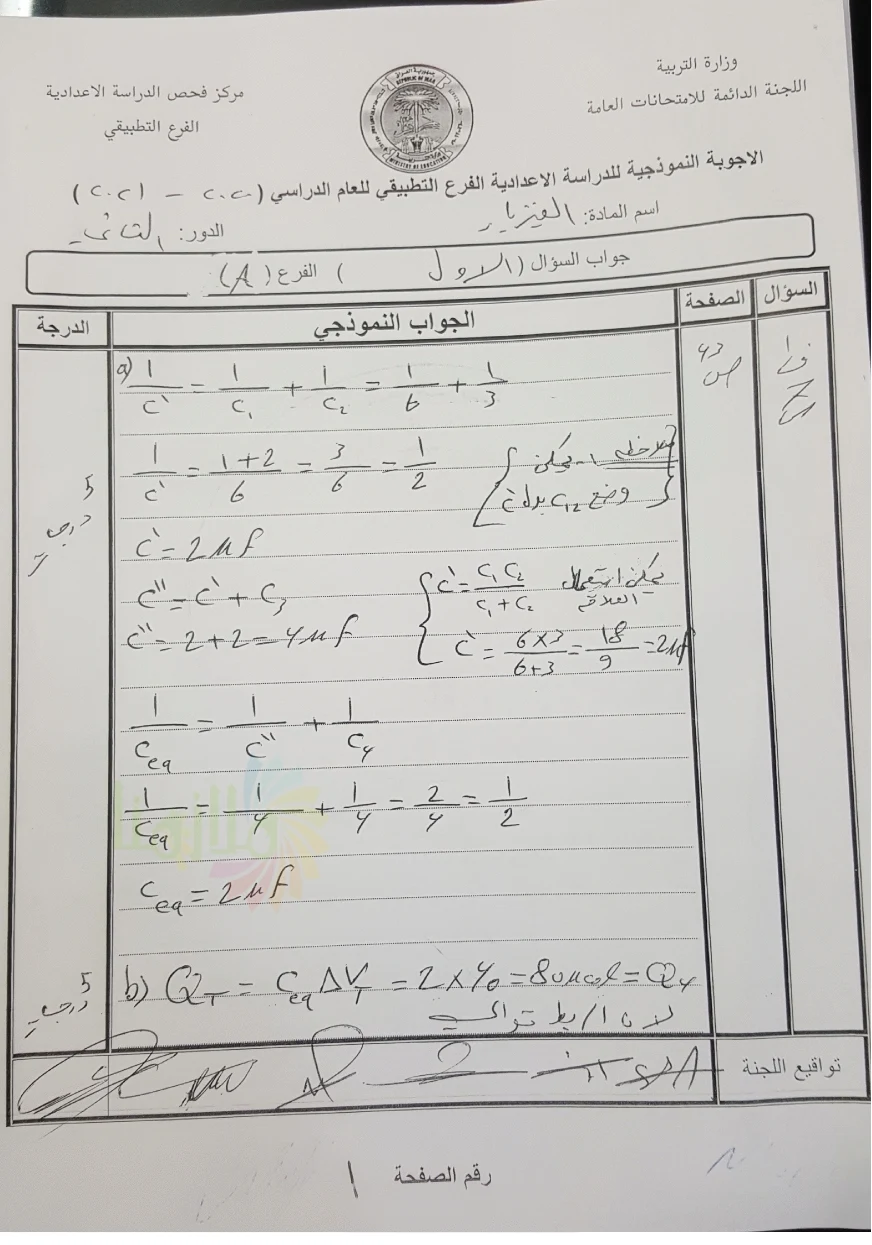 وزارة التربية
اللجنة الدائمة للامتحانات العامة
مركز فحص الدراسة الاعدادية
الفرع التطبيقي
REPUBLIC OF IRAQ
MINISTRY OF EDUCATION
الاجوبة النموذجية للدراسة الاعدادية الفرع التطبيقي للعام الدراسي (٢٠٢٠ - ٢٠٢١)
اسم المادة: الفيزياء الدور: الثاني
جواب السؤال (الاول ) الفرع (A)
السؤال الصفحة الجواب النموذجي الدرجة
ص ٤٣
a) 1/C' = 1/C₁ + 1/C₂ = 1/6 + 1/3
1/C' = 1+2/6 = 3/6 = 1/2
{ملاحظة ١- يمكن
وضع C₁₂ بدل C'}
5 درجة
C' = 2 μF
C'' = C' + C₃
C'' = 2+2 = 4 μF
يمكن استعمال العلاقة
{C' = C₁C₂/C₁+C₂
C' = 6×3/6+3 = 18/9 = 2μF
1/Ceq = 1/C'' + 1/C₄
1/Ceq = 1/4 + 1/4 = 2/4 = 1/2
ملازمنا
Ceq = 2 μF
b) Q_T = Ceq ΔV_T = 2×40 = 80 μcol = Q₄
5 درجة
لان الربط توالي
تواقيع اللجنة
رقم الصفحة 1